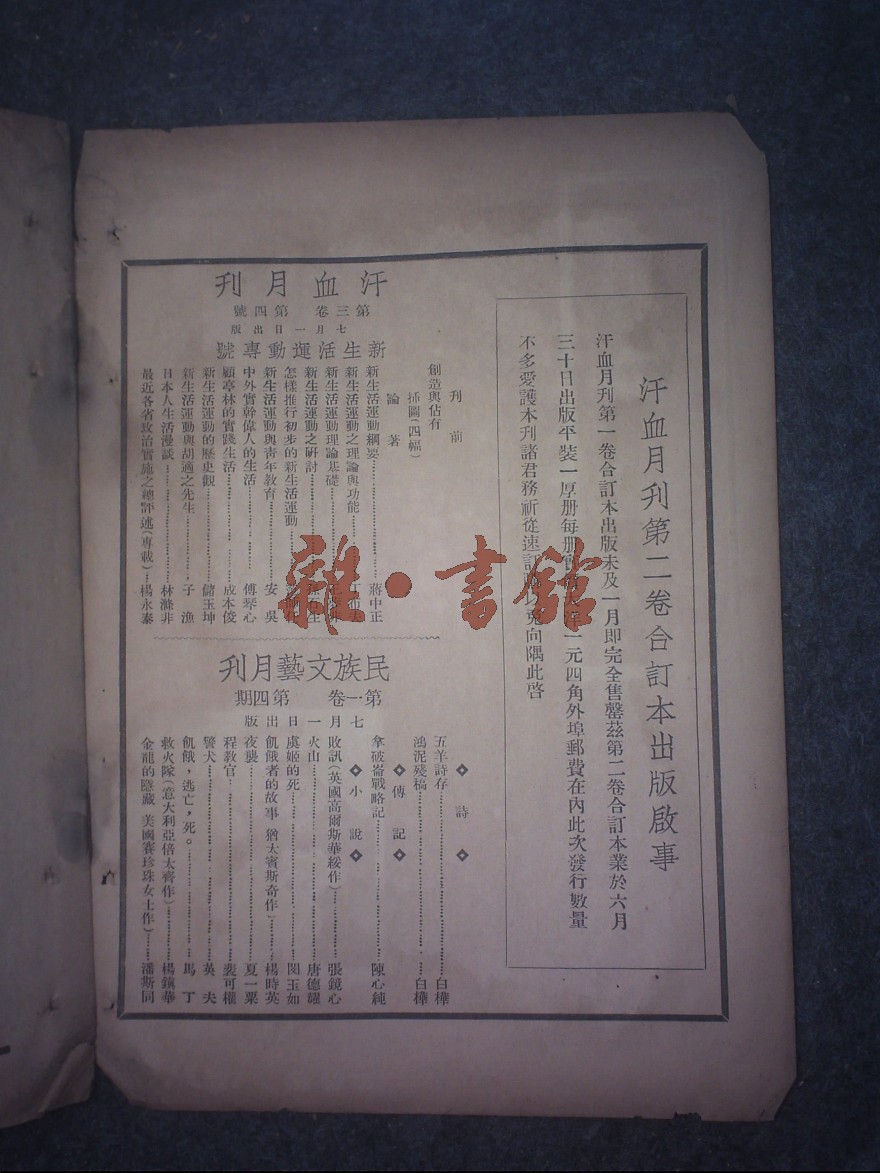 汗血月刊第二卷合訂本出版啟事
汗血月刊第一卷合訂本出版未及一月即完全售罄茲第二卷合訂本業於六月
三十日出版平裝一厚册每册 一元四角外埠郵費在內此次發行數量
不多愛護本刊諸君務祈從速 以免向隅此啓
汗血月刊
第三卷 第四號
七月一日出版
新生活運動專號
刊前
創造與佔有
插圖(四幅)
論著
新生活運動綱要 蔣中正
新生活運動之理論與功能
新生活運動理論基礎
新生活運動之研討 石生
怎樣推行初步的新生活運動
新生活運動與青年教育 安吳
中外實幹偉人的生活 傅琴心
顧亭林的實踐生活 成本俊
新生活運動的歷史觀 儲玉坤
新生活運動與胡適之先生 子漁
日本人生活漫談 林滌非
最近各省政治實施之總評述(專載) 楊永泰
民族文藝月刊
第一卷 第四期
七月一日出版
◆詩◆
五羊詩存 白樺
鴻泥殘稿 白樺
◆傳記◆
拿破崙戰略記 陳心純
◆小說◆
敗訊(英國高爾斯華綏作) 張鏡心
火山 唐德耀
虞姬的死 閔玉如
飢餓者的故事 猶太賓斯奇作) 楊時英
夜襲 夏一粟
程教官 裴可權
警犬 英夫
飢餓，逃亡，死。 馬丁
救火隊(意大利亞倍太齊作) 楊鎮華
金龍的隱藏 美國賽珍珠女士作) 潘斯同
雜·書館